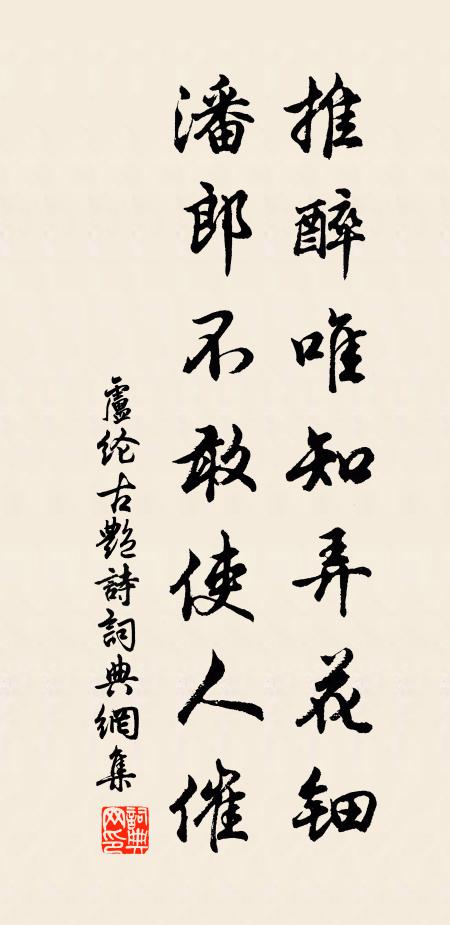 推醉唯知弄花钿
潘郎不敢使人催
盧纶古艷詩詞典網集
詞典網印